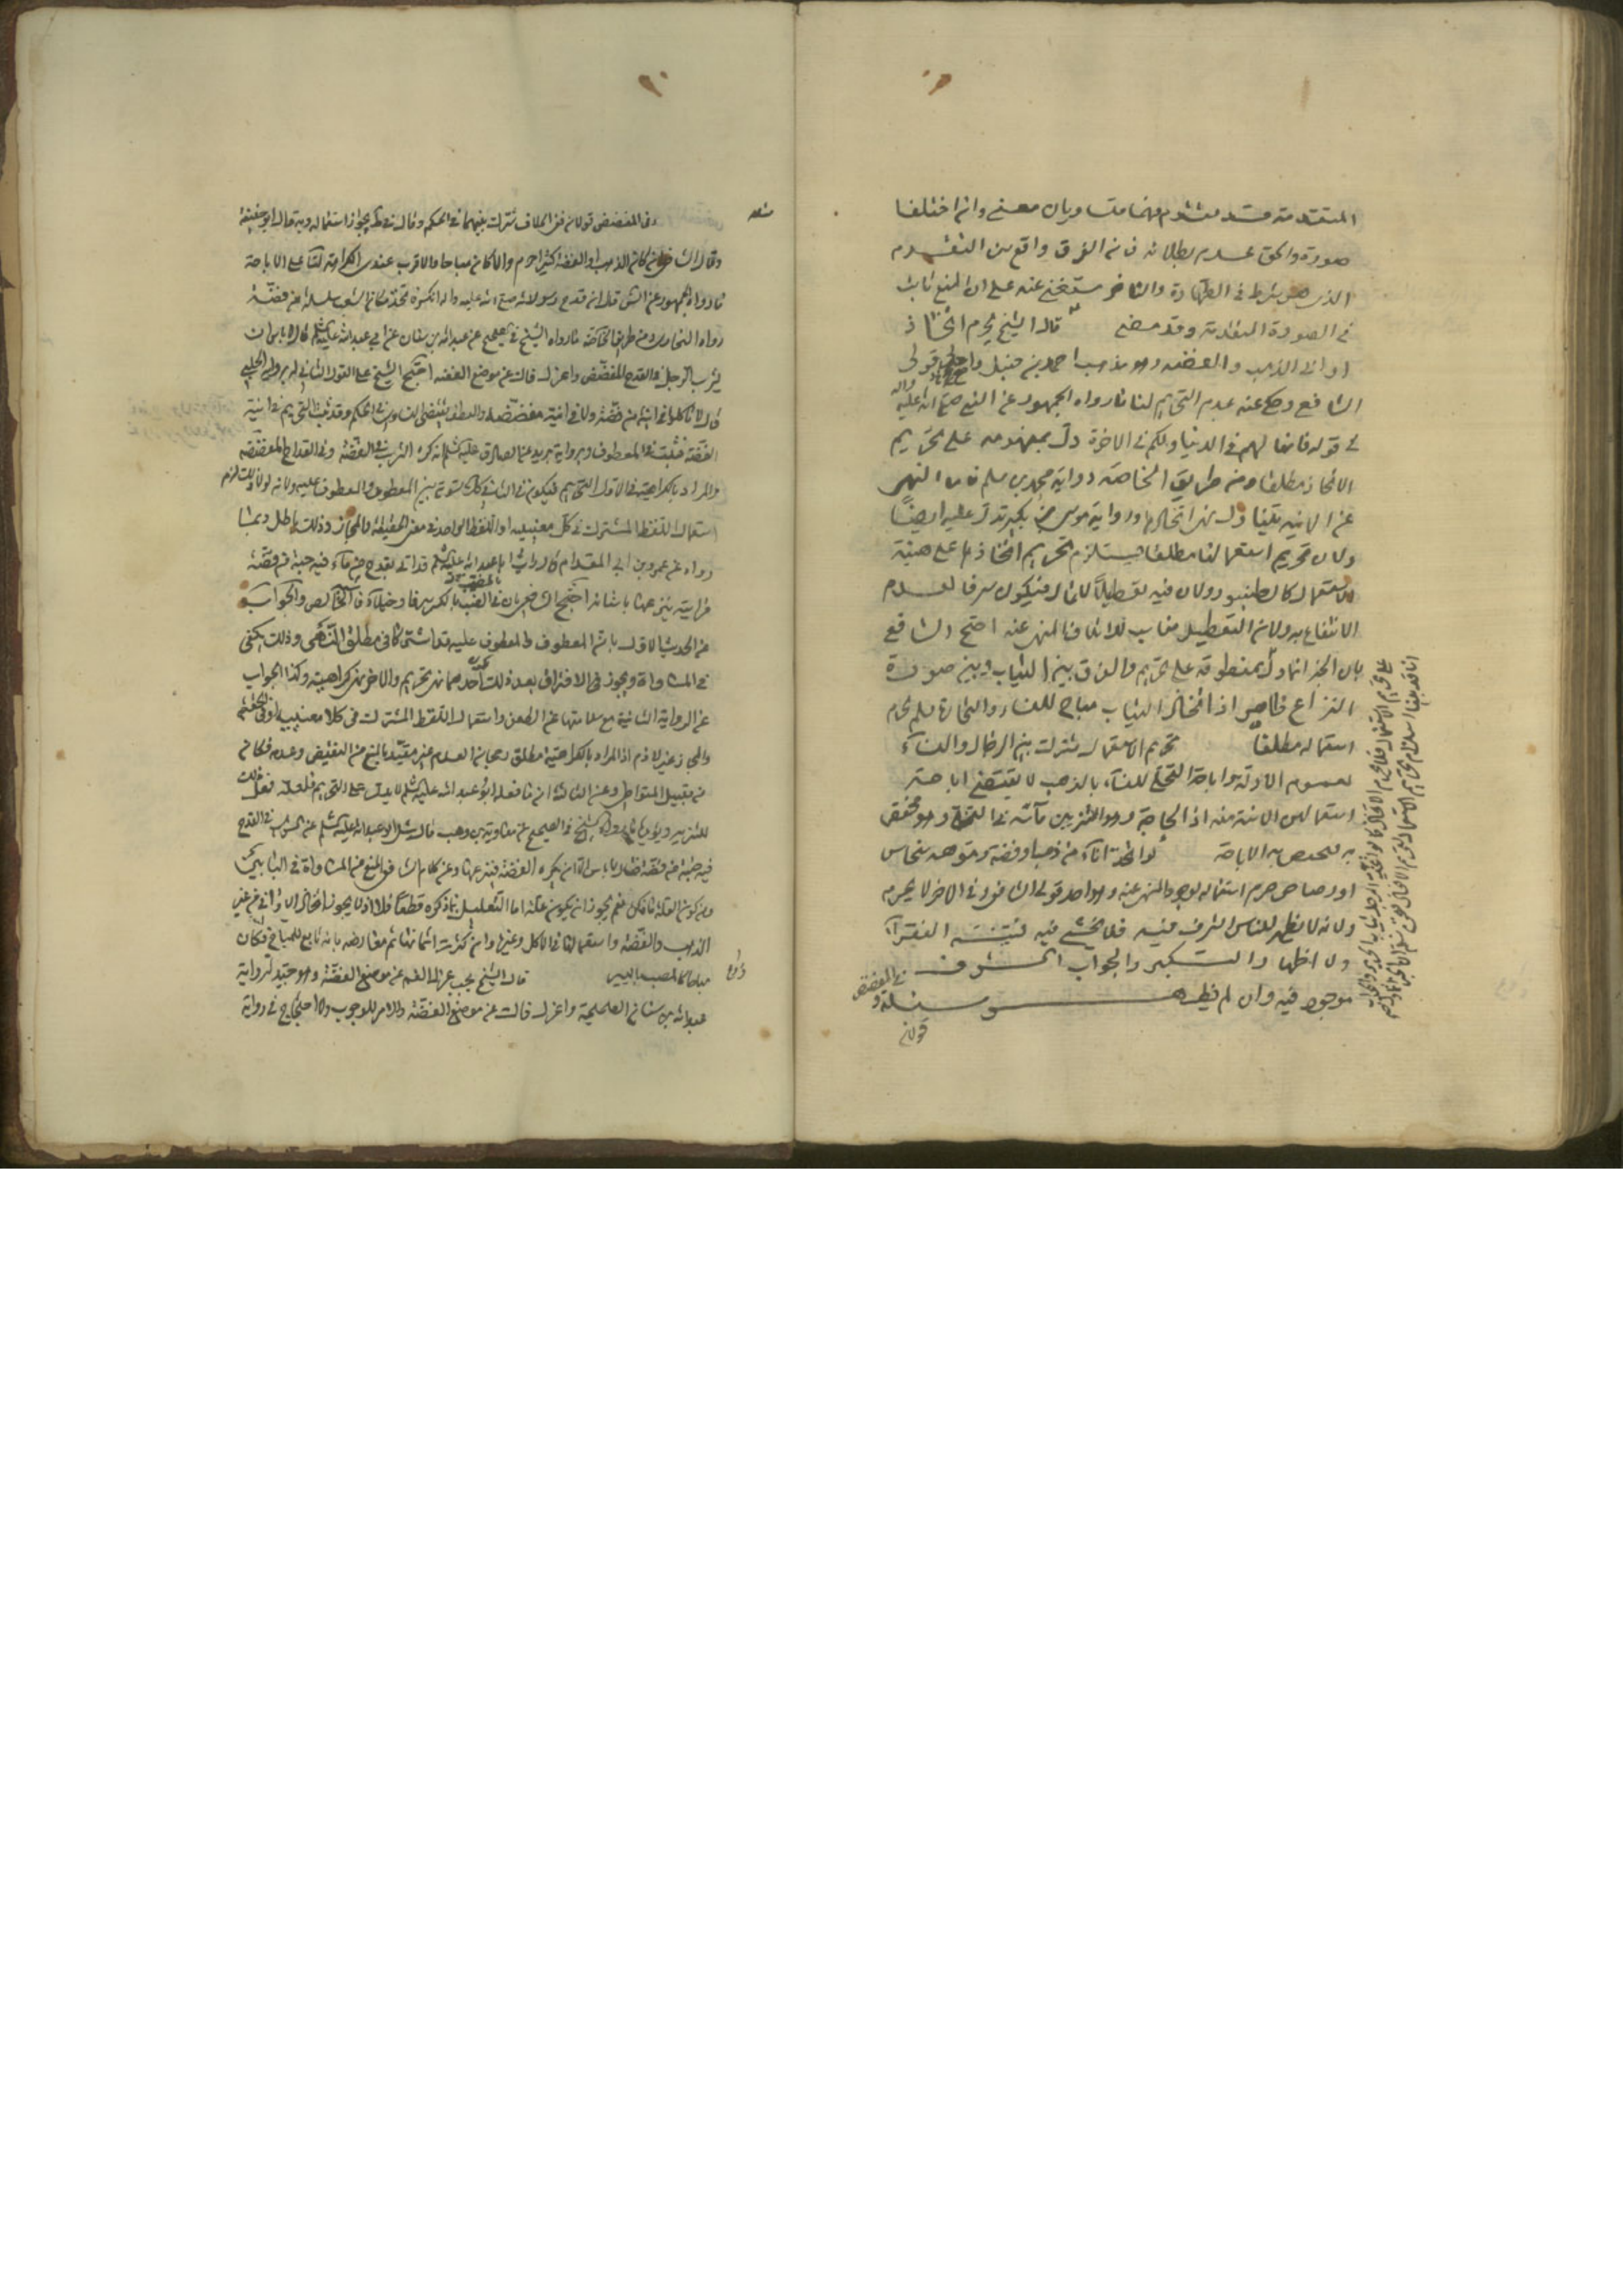 المتقدمة قد يتقدم فهما متساويان معنى وان اختلفا
صورة والحق عدم بطلانه فان الفرق واقع بين التقدم
الذى هو شرط فى الطهارة والتاخر مستغنى عنه على ان المنع ثابت
فى الصورة المتقدمة وقد مضى قال الشيخ يحرم اتخاذ
اوانى الذهب والفضة وهو مذهب احمد بن حنبل واحد قولى
الشافعى وحكى عنه عدم التحريم لنا ما رواه الجمهور عن النبى صلى الله عليه واله
فى قوله فانها لهم فى الدنيا ولكم فى الاخرة دل بمفهومه على تحريم
الاتخاذ مطلقا ومن طريق الخاصة رواية محمد بن مسلم فان النهى
عن الانية يتناول نهى اتخاذها ورواية موسى بن بكير تدل عليه ايضا
ولان تحريم استعمالها مطلقا يستلزم تحريم اتخاذها على هيئة
الاستعمال كالطنبور ولان فيه تعطيلا للمال فيكون سرفا لعدم
الانتفاع به ولان التعطيل مناسب للاتلاف المنهى عنه احتج الشافعى
بان الخبر انما دل بمنطوقه على تحريم والفرق بين الثياب وبين صورة
النزاع ظاهر اذ اتخاذ الثياب مباح للنساء والتجارة فلم يحرم
استعماله مطلقا تحريم الاستعمال مشترك بين الرجال والنساء
لعموم الادلة واباحة التحلى للنساء بالذهب لا يقتضى اباحة
استعمالهن الانية منه اذ الحاجة وهو التزيين ماسة فى التحلى وهو مختص
به فتختص به الاباحة لو اتخذ اناء من ذهب او فضة وموهه بنحاس
او رصاص حرم استعماله لوجود المنهى عنه وهو احد قولى الشافعى وفى الاخر لا يحرم
ولانه لا يظهر للناس السرف فيه فلا يخشى فيه فتنة الفقراء
ولا اظهار التكبر والجواب السرف
موجود فيه وان لم يظهر مسئلة وفى المفضض
قولان
مسئلة وفى المفضض قولان ففى الخلاف شرك بينهما فى الحكم وقال فى ط يجوز استعماله وبه قال ابو حنيفة
وقال الشافعى ان كان الذهب او الفضة كثيرا حرم والا كان مباحا والاقرب عندى الكراهة لنا على الاباحة
ما رواه الجمهور عن انس قال ان قدح رسول الله صلى الله عليه واله انكسر فاتخذ مكان الشعب سلسلة من فضة
رواه البخارى ومن طريق الخاصة ما رواه الشيخ فى الصحيح عن عبد الله بن سنان عن ابى عبد الله عليه السلم قال لا باس ان
يشرب الرجل فى القدح المفضض واعزل فاك عن موضع الفضة احتج الشيخ على القول الثانى بما رواه الحلبى
قال لا تاكلوا فى انية من فضة ولا فى انية مفضضة والعطف يقتضى التساوى فى الحكم وقد ثبت التحريم فى انية
الفضة فثبت فى المعطوف وبرواية بريد عن الصادق عليه السلم انه كره الشرب فى الفضة وفى القداح المفضضة
والمراد بالكراهية فى الاول التحريم فيكون فى الثانى كذلك تسوية بين المعطوف والمعطوف عليه ولانه لولاه لزم
استعمال اللفظ المشترك فى كلا معنييه او اللفظ الواحد فى معنى الحقيقة والمجاز وذلك باطل وبما
رواه عن عمرو بن ابى المقدام قال رايت ابا عبد الله عليه السلم قد اتى بقدح من ماء فيه ضبة من فضة
فرايته ينزعها باسنانه احتج الشافعى بان فى المضبب بالكثير سرفا وخيلاء فاشبه الخالص والجواب
عن الحديث الاول بان المعطوف والمعطوف عليه قد اشتركا فى مطلق النهى وذلك يكفى
فى المساواة ويجوز الافتراق بعد ذلك بكون احدهما نهى تحريم والاخر نهى كراهية وكذا الجواب
عن الرواية الثانية مع سلامتها عن الطعن واستعمال اللفظ المشترك فى كلا معنييه او فى الحقيقة
والمجاز غير لازم اذ المراد بالكراهية مطلق رجحان العدم غير مقيد بالمنع من النقيض وعدمه فكان
من قبيل المتواطى وعن الثالثة ان ما فعله ابو عبد الله عليه السلم لا يدل على التحريم فلعله فعل ذلك
للتنزيه ويؤيده ما رواه الشيخ فى الصحيح عن معاوية بن وهب قال سئل ابو عبد الله عليه السلم عن الشرب فى القدح
فيه ضبة من فضة فقال لا باس الا ان يكره الفضة فينزعها وعن كلام الشافعى بالمنع من المساواة فى الثانى
الذهب والفضة واستعمالها فى الاكل وغيره وان كثرت اثمانها ثم معارضه بانه تابع للمباح فكان
مباحا كالمضبب باليسير قال الشيخ يجب عزل الفم عن موضع الفضة وهو جيد لرواية
عبد الله بن سنان الصحيحة واعزل فاك عن موضع الفضة والامر للوجوب والاحتجاج فى رواية